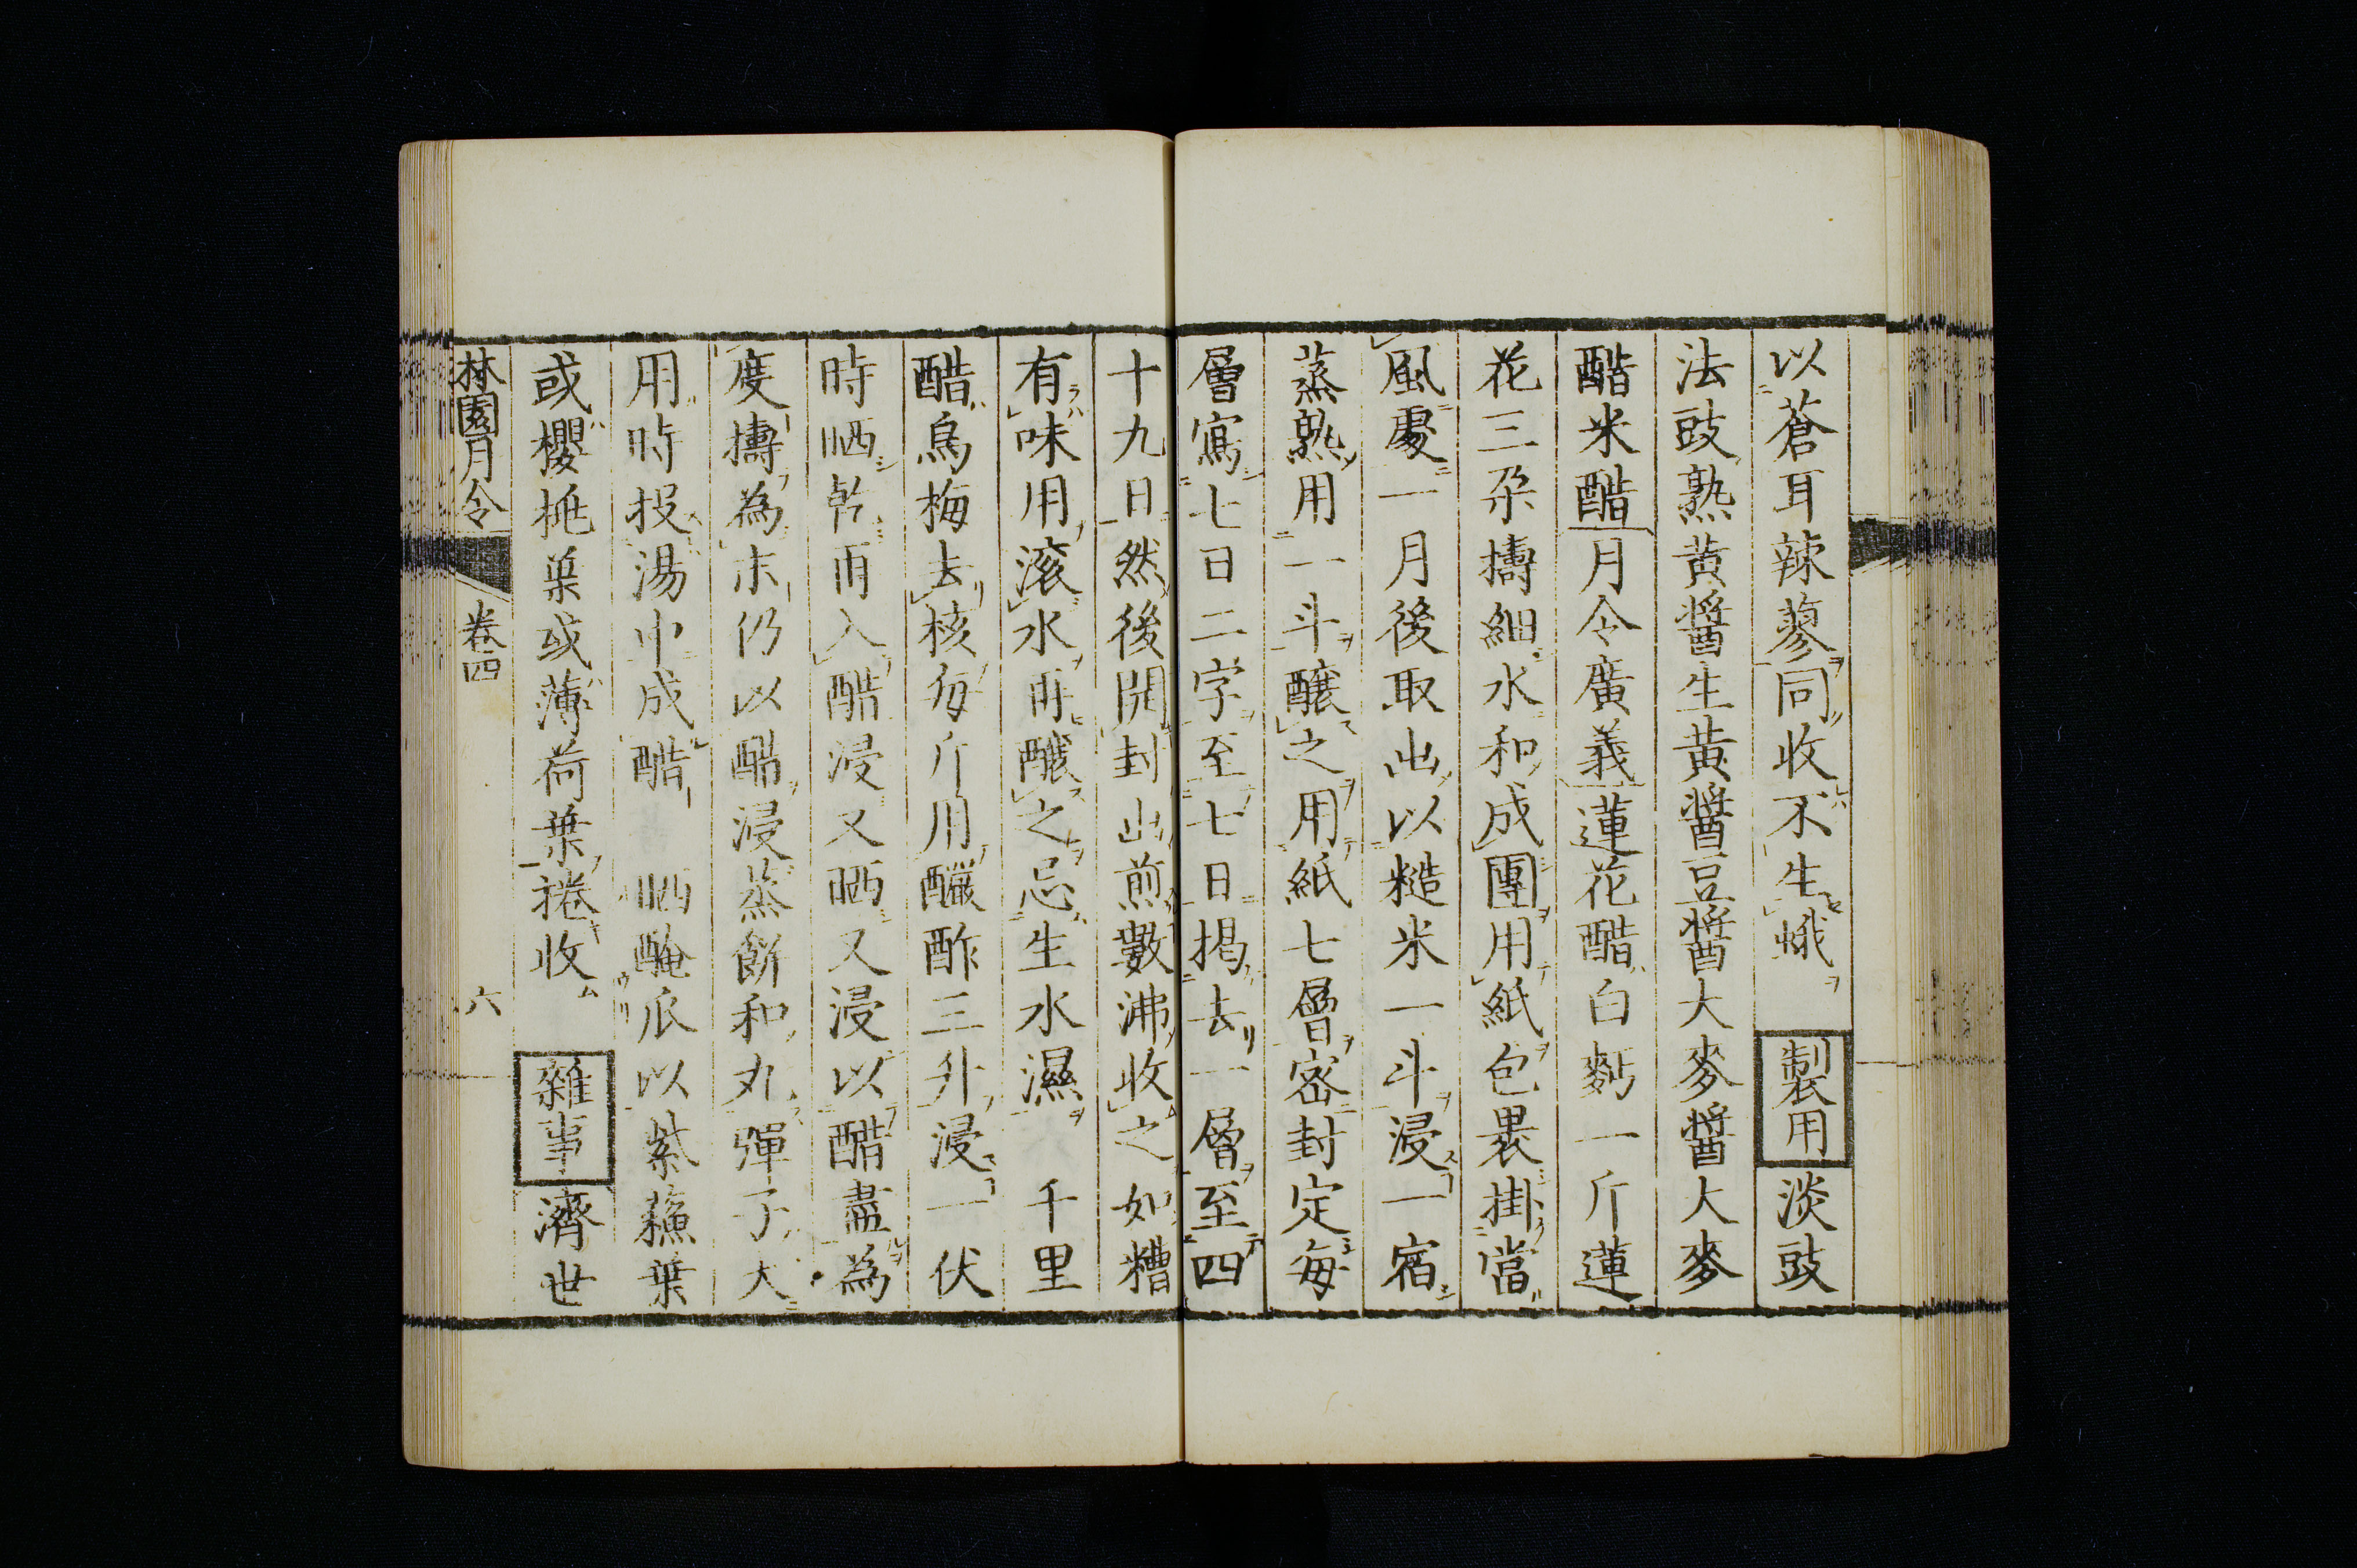 以蒼耳辣蓼同收不生蛾 製用 淡豉
法豉熟黄醬生黄醬豆醬大麥醬大麥
醋米醋月令廣義蓮花醋白麪一斤蓮
花三朶擣細水和成團用紙包褁掛當
風處一月後取出以糙米一斗浸一宿
蒸熟用一斗釀之用紙七層密封定每
層寫七日二字至七日揭去一層至四
十九日然後開封出煎數沸收之如糟
有味用滚水再釀之忌生水濕 千里
醋烏梅去核每斤用釅酢三升浸一伏
時晒乾再入醋浸又晒又浸以醋盡為
度擣為末仍以醋浸蒸餅和丸彈子大
用時投湯中成醋 晒醃瓜以紫蘓葉
或櫻桃葉或薄荷葉捲收 雜事 濟世
林園月令 卷四 六